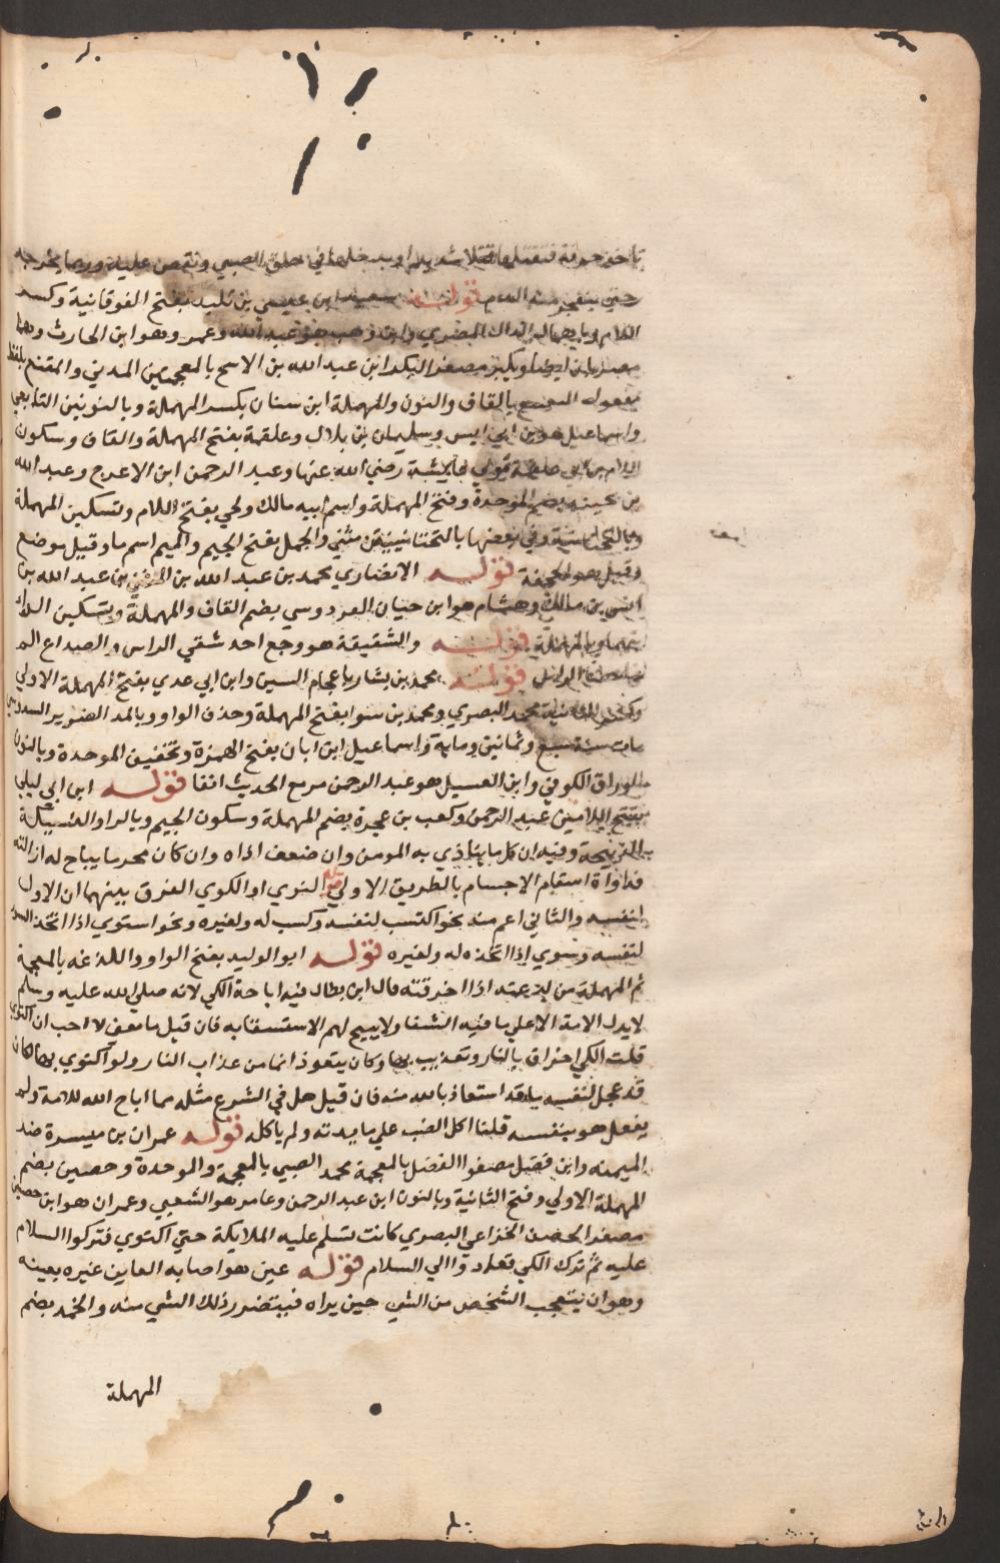 تاخذ خرقة فتفتلها فتلا شديدا وبدخلها في حلق الصبي وتغمص عليه وربما يخرجه
حتي ينفجر منه الدم قوله سعيد ابن عيسي بن تليد بفتح الفوقانية وكسر
اللام وباهمال الدال المصري وابن وهب هو عبد الله وعمرو هو ابن الحارث وهما
مصريان ايضا وبكير مصغر البكر ابن عبد الله بن الاشج بالمعجمتين المدني والمقنع بلفظ
مفعول التقنيع بالقاف والنون والمهملة ابن سنان بكسر المهملة وبالنونين التابعي
واسماعيل هو بن ابي اويس وسليمان بن بلال وعلقمة بفتح المهملة والقاف وسكون
اللام بن ابي علقمة مولي عايشة رضي الله عنها وعبد الرحمن ابن الاعرج وعبد الله
بن بحينه بضم الموحدة وفتح المهملة واسم ابيه مالك ولحي بفتح اللام وتسكين المهملة
وبالتحتانية وفي بعضها بالتحتانيتين مثني والجمل بفتح الجيم والميم اسم ما وقيل موضع
وقيل هو الجحفة قوله الانصاري محمد بن عبد الله بن المثني بن عبد الله بن
انس بن مالك وهشام هو ابن حسان الفردوسي بضم القاف والمهملة وتسكين الراء
بينهما وبالمهملة قوله والشقيقة هو وجع احد شقي الراس والصداع الم
في اعضا الراس قوله محمد بن بشار باعجام السين وابن ابي عدي بفتح المهملة الاولي
وكسر الثانية محمد البصري ومحمد بن سوا بفتح المهملة وخفة الواو وبالمد الضرير السدوسي
مات سنة سبع وثمانين ومايه واسماعيل ابن ابان بفتح الهمزة وتخفيف الموحدة وبالنون
الوراق الكوفي وابن الغسيل هو عبد الرحمن مر مع الحديث انفا قوله ابن ابي ليلي
بفتح اللامين عبد الرحمن وكعب بن عجرة بضم المهملة وسكون الجيم وبالراء النسيكة
الذبيحة وفيه ان كل ما يتاذي به المومن وان ضعف اذاه وان كان محرما يباح له ازالته
فداواة اسقام الاجسام بالطريق الاولي قوله النوي او الكوي الفرق بينهما ان الاول
لنفسه والثاني اعم منه نحو اكتسب لنفسه وكسب له ولغيره ونحو استوي اذا اتخذ الشوا
لنفسه وشوي اذا اتخذه له ولغيره قوله ابو الوليد بفتح الواو واللذغه بالمعجمة
ثم المهملة من لذعته اذا احرقته قال ابن بطال فيه اباحة الكي لانه صلي الله عليه وسلم
لا يدل الامة الا علي ما فيه الشفا ولا يبيح لهم الاستسقا به فان قيل ما معني لا احب ان اكتوي
قلت الكي احراق بالنار وتعذيب بها وكان يتعوذ دائما من عذاب النار ولو اكتوي بها لكان
قد عجل لنفسه ما قد استعاذ بالله منه فان قيل هل في الشرع مثله مما اباح الله للامة ولم
يفعل هو بنفسه قلنا اكل الضب علي مايدته ولم ياكله قوله عمران بن ميسرة ضد
الميمنه وابن فضيل مصغر الفضل بالمعجمة محمد الضبي بالمعجمة والموحدة وحصين بضم
المهملة الاولي وفتح الثانية وبالنون ابن عبد الرحمن وعامر هو الشعبي وعمران هو ابن حصين
مصغر الحصن الخزاعي البصري كانت تسلم عليه الملايكة حتي اكتوي فتركوا السلام
عليه ثم ترك الكي فعادوا الي السلام قوله عين هو اصابه العاين غيره بعينه
وهو ان يتعجب الشخص من الشي حين يراه فيتضرر ذلك الشي منه والحمة بضم
المهملة